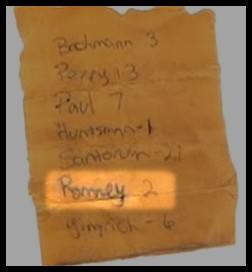 Bachmann 3
Perry 13
Paul 7
Huntsman-1
Santorum-21
Romney 2
gingrich-6